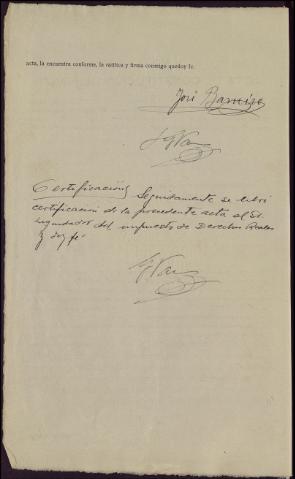 acta, la encuentra conforme, la ratifica y firma conmigo quedoy fe.
José
Certificación) Seguidamente se libró
certificación de la precedente acta al Sr.
Liquidador del impuesto de Derechos Reales
y doy fé